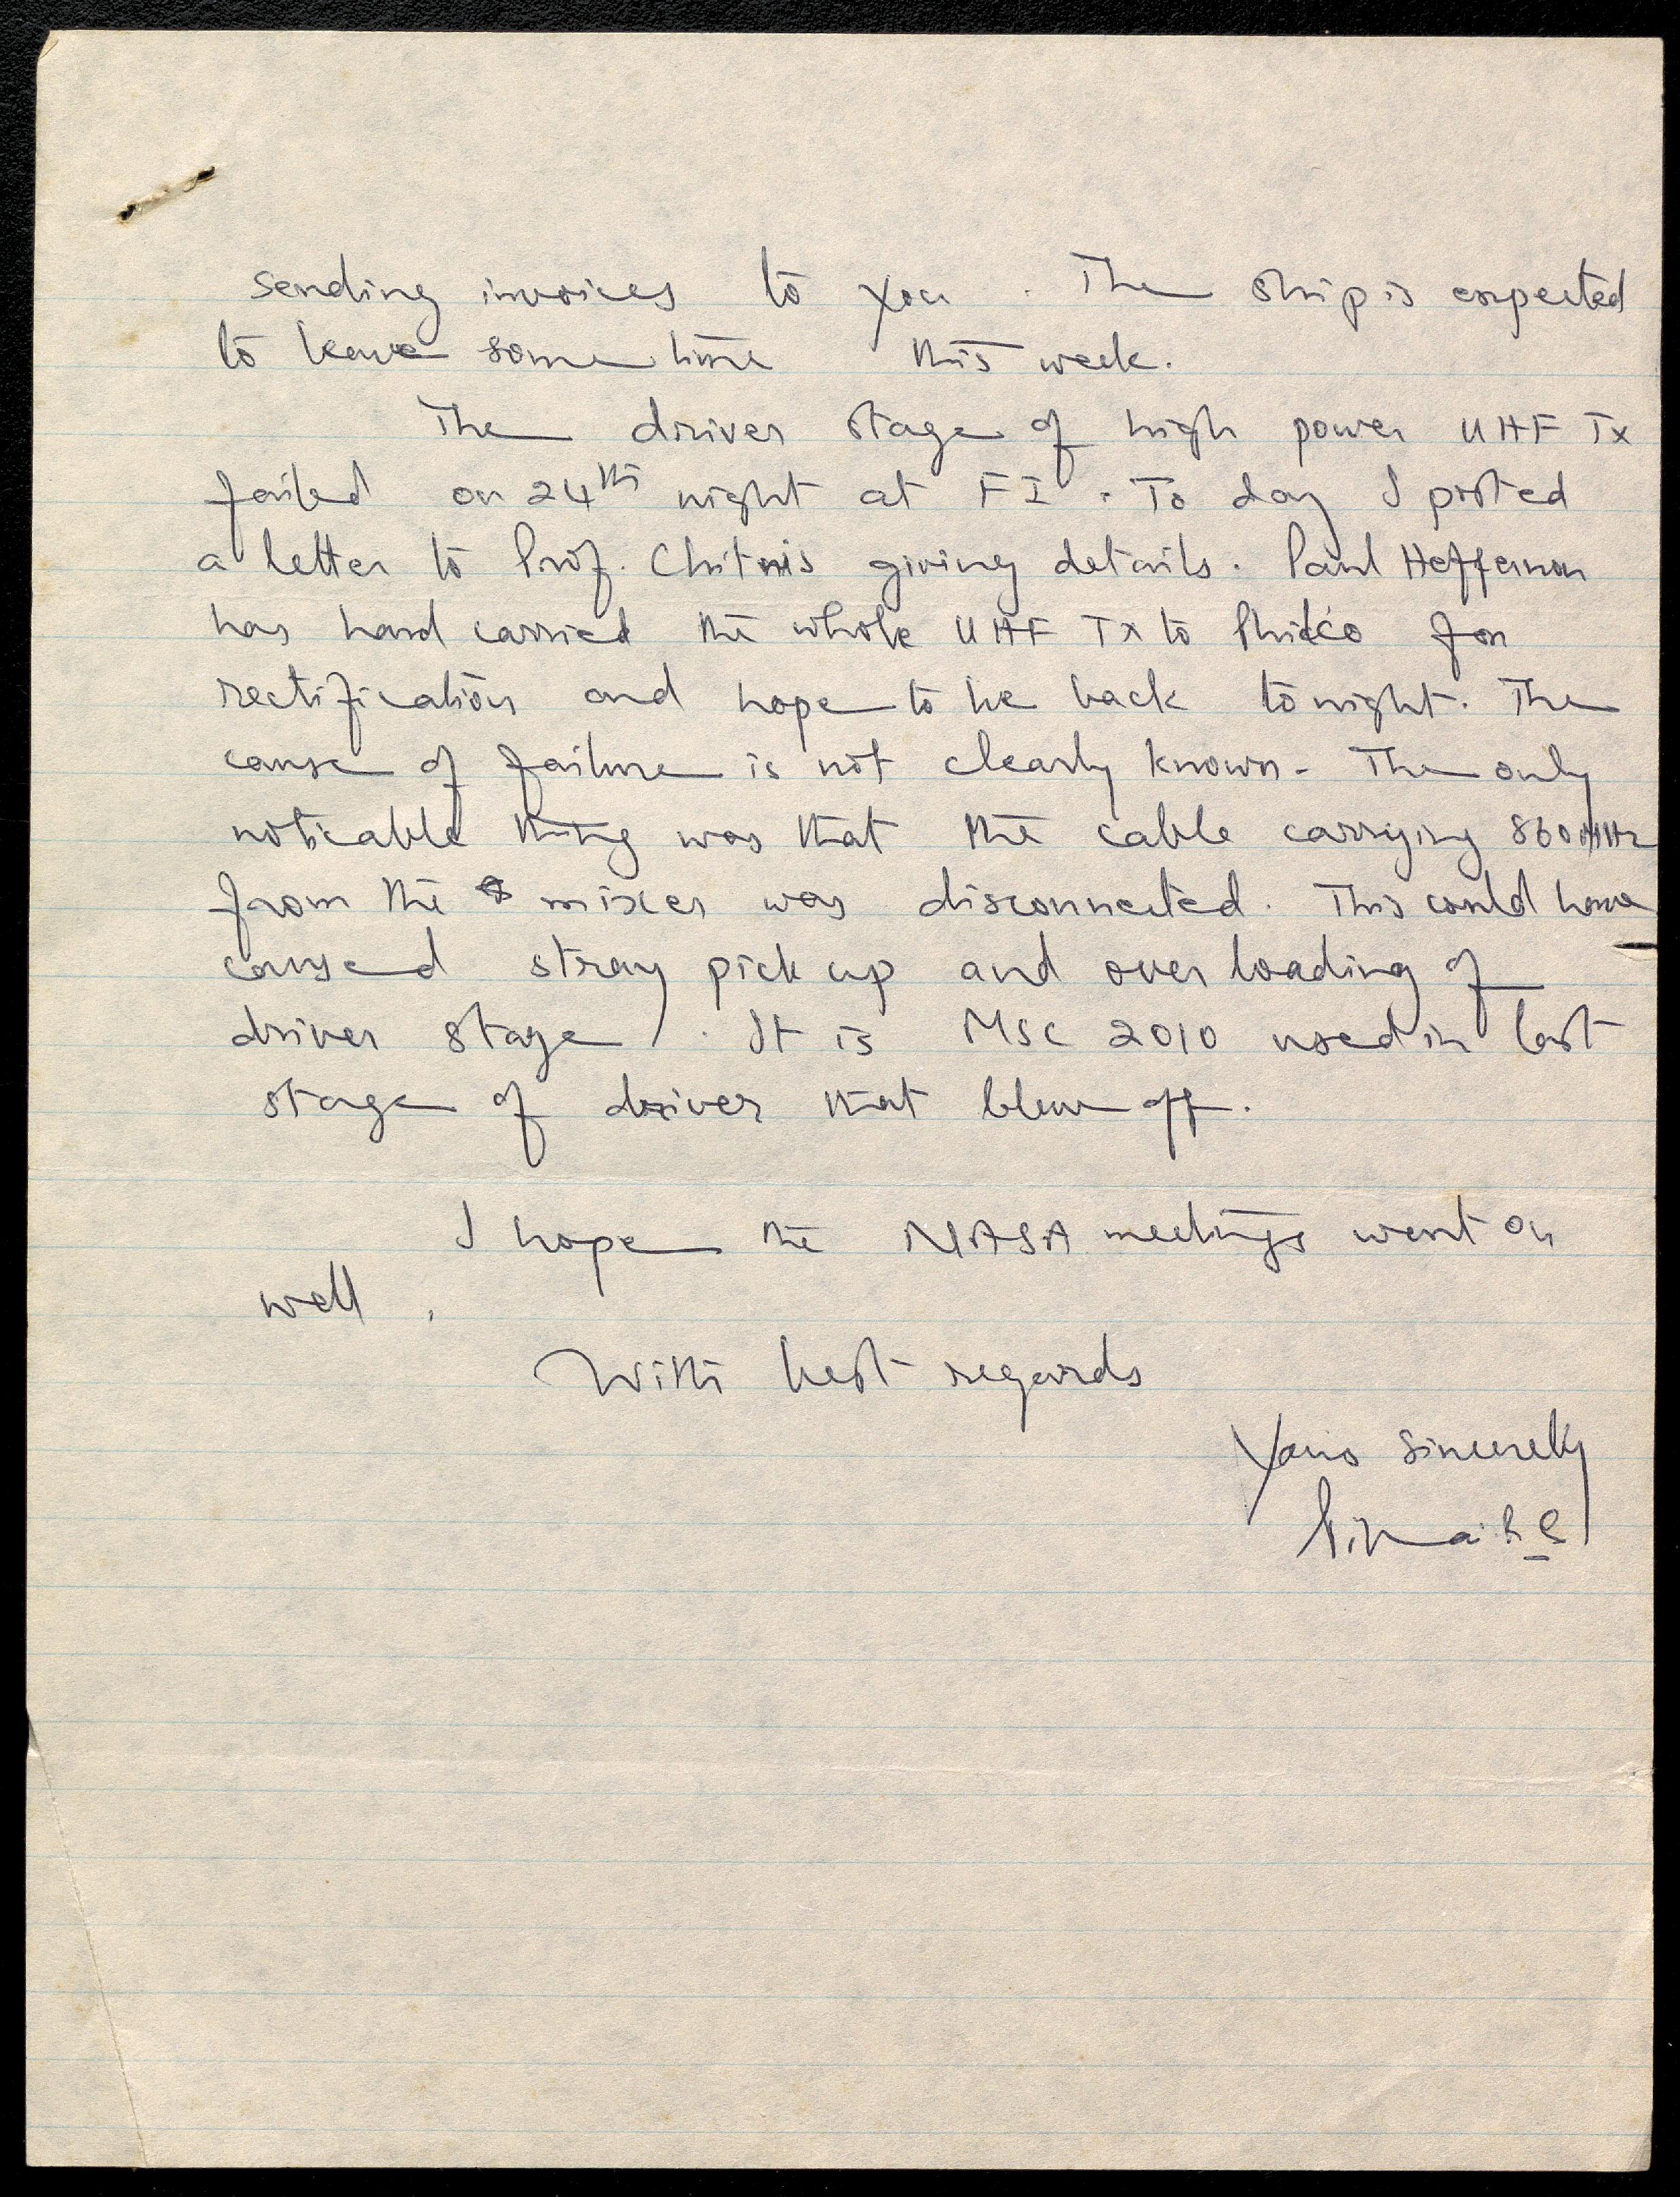 sending invoices to you. The ship is expected
to leave some time this week.
The driver stage of high power UHF Tx
failed on 24th night at FI. To day I posted
a letter to Prof. Chitnis giving details. Paul Heffernan
has hand carried the whole UHF Tx to Philco for
rectification and hope to be back tonight. The
cause of failure is not clearly known. The only
noticable thing was that the cable carrying 860 MHz
from the mixer was disconnected. This could have
caused stray pick up and over loading of
driver stage. It is MSC 2010 used in last
stage of driver that blew off.
I hope the NASA meetings went on
well.
With best regards
Yours sincerely